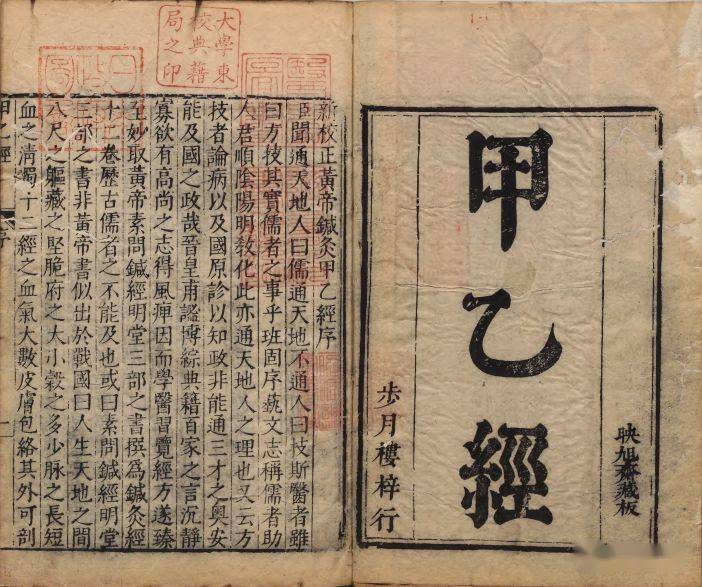 映旭齋藏板
甲乙經
步月樓梓行
大學東
校典籍
局之印
新校正黃帝鍼灸甲乙經序
臣聞通天地人曰儒通天地不通人曰技斯醫者雖
曰方技其實儒者之事乎班固序藝文志稱儒者助
人君順陰陽明教化此亦通天地人之理也又云方
技者論病以及國原診以知政非能通三才之奧安
能及國之政哉晉皇甫謐博綜典籍百家之言沉靜
寡欲有高尚之志得風痺因而學醫習覽經方遂臻
至妙取黃帝素問鍼經明堂三部之書撰爲鍼灸經
十二卷歷古儒者之不能及也或曰素問鍼經明堂
三部之書非黃帝書似出於戰國曰人生天地之間
八尺之軀藏之堅脆府之大小穀之多少脉之長短
血之淸濁十二經之血氣大數皮膚包絡其外可剖
甲乙經 序 一